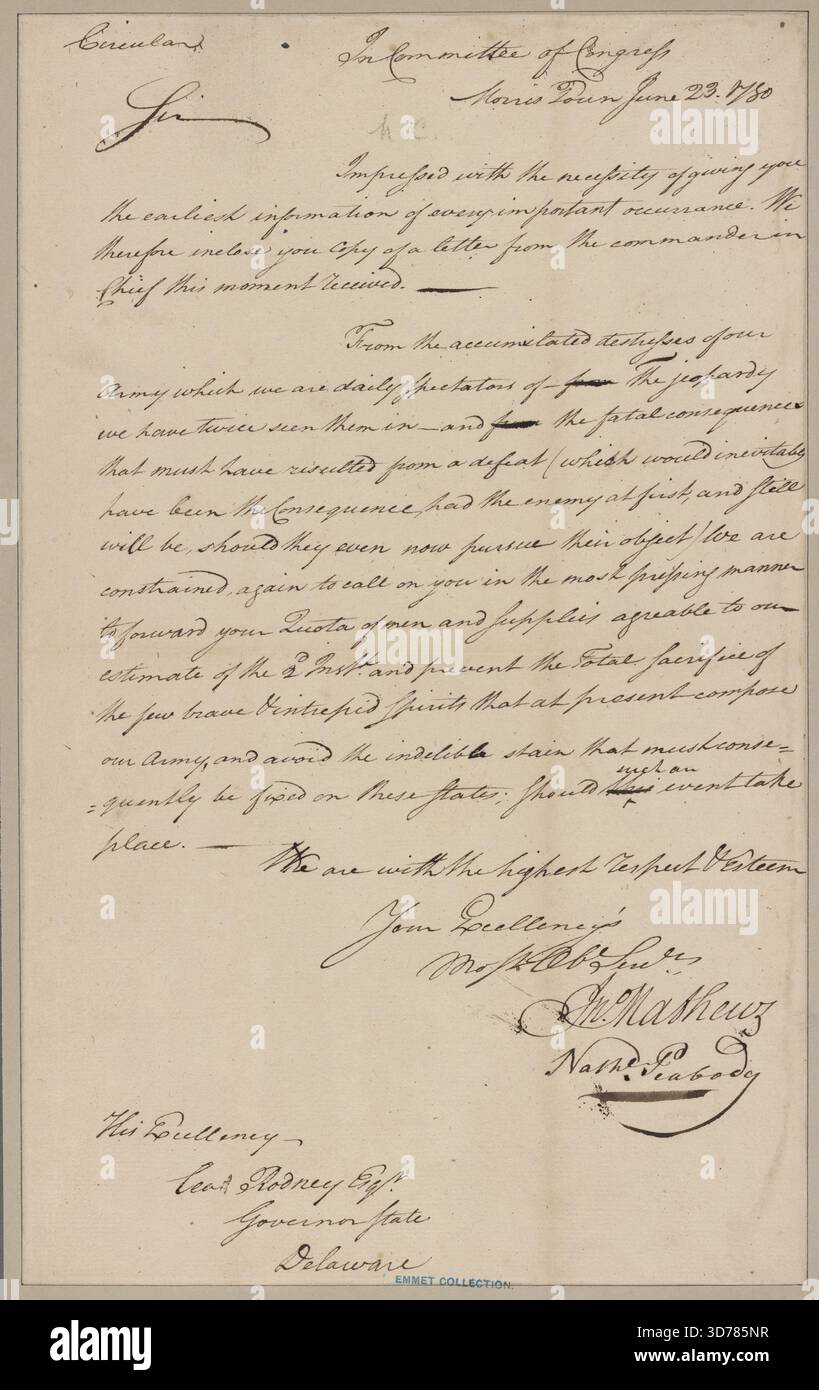 Circular
In Committee of Congress
Morris Town June 23. 1780
Sir
Impressed with the necessity of giving you
the earliest information of every important occurrance. We
therefore inclose you Copy of a letter from the commander in
Chief this moment received.
From the accumulated destresses of our
Army which we are daily spectators of – from The jeopardy
we have twice seen them in – and from the fatal consequences
that must have resulted from a defeat (which would inevitably
have been the Consequence, had the enemy at first, and still
will be, should they even now pursue their object) We are
constrained, again to call on you in the most pressing manner
to forward your Quota of men and supplies agreable to our
estimate of the 2d Inst. and prevent the Total Sacrifice of
the few brave & intrepid spirits that at present compose
our Army, and avoid the indelible stain that must conse=
=quently be fixed on these States; should this such an event take
place.
We are with the highest respect & Esteem
Your Excellency's
Most Obt. Servts.
Jno. Mathews
Nathl. Peabody
His Excellency
Cesar Rodney Esqr.
Governor State
Delaware
EMMET COLLECTION.
alamy
a
Image ID: 3D785NR
www.alamy.com